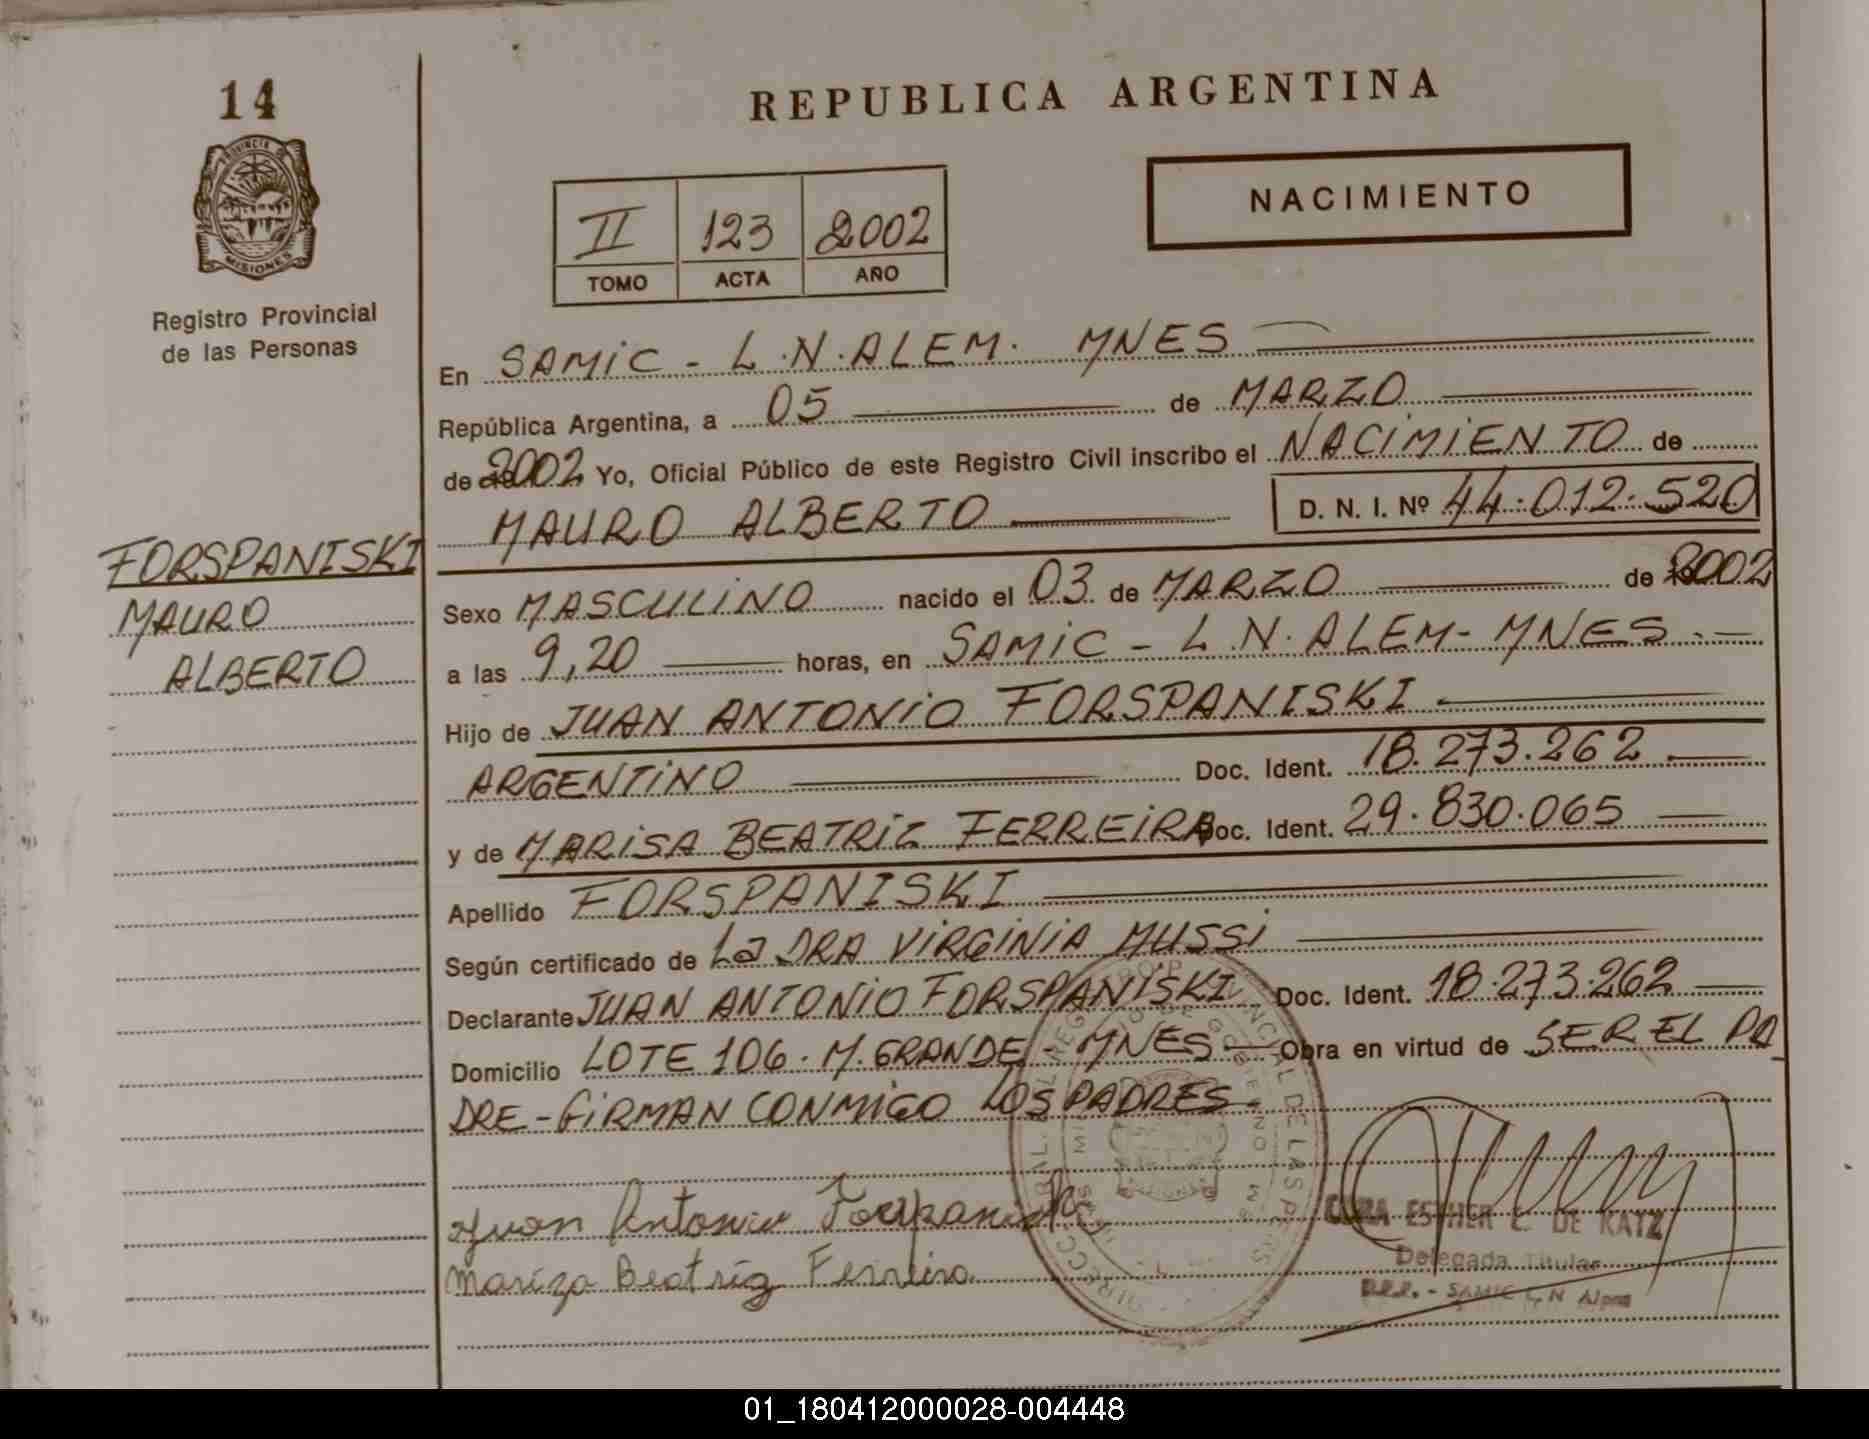 14
REPUBLICA ARGENTINA
PROVINCIA DE
MISIONES
Registro Provincial
de las Personas
NACIMIENTO
II 123 2002
TOMO ACTA AÑO
En SAMIC - L.N. ALEM. MNES
República Argentina, a 05 de MARZO
de 2002 Yo, Oficial Público de este Registro Civil inscribo el NACIMIENTO de
MAURO ALBERTO D. N. I. Nº 44.012.520
FORSPANISKI
MAURO
ALBERTO
Sexo MASCULINO nacido el 03 de MARZO de 2002
a las 9,20 horas, en SAMIC - L.N. ALEM - MNES.-
Hijo de JUAN ANTONIO FORSPANISKI
ARGENTINO Doc. Ident. 18.273.262
y de MARISA BEATRIZ FERREIRA Doc. Ident. 29.830.065
Apellido FORSPANISKI
Según certificado de La DRA VIRGINIA MUSSI
Declarante JUAN ANTONIO FORSPANISKI Doc. Ident. 18.273.262
Domicilio LOTE 106. M. GRANDE - MNES - Obra en virtud de SER EL PA
DRE - FIRMAN CONMIGO LOS PADRES.
Juan Antonio
Mariza Beatriz Ferreira
ESTHER C. DE KATZ
Delegada Titular
SAMIC L.N Alem
01_180412000028-004448